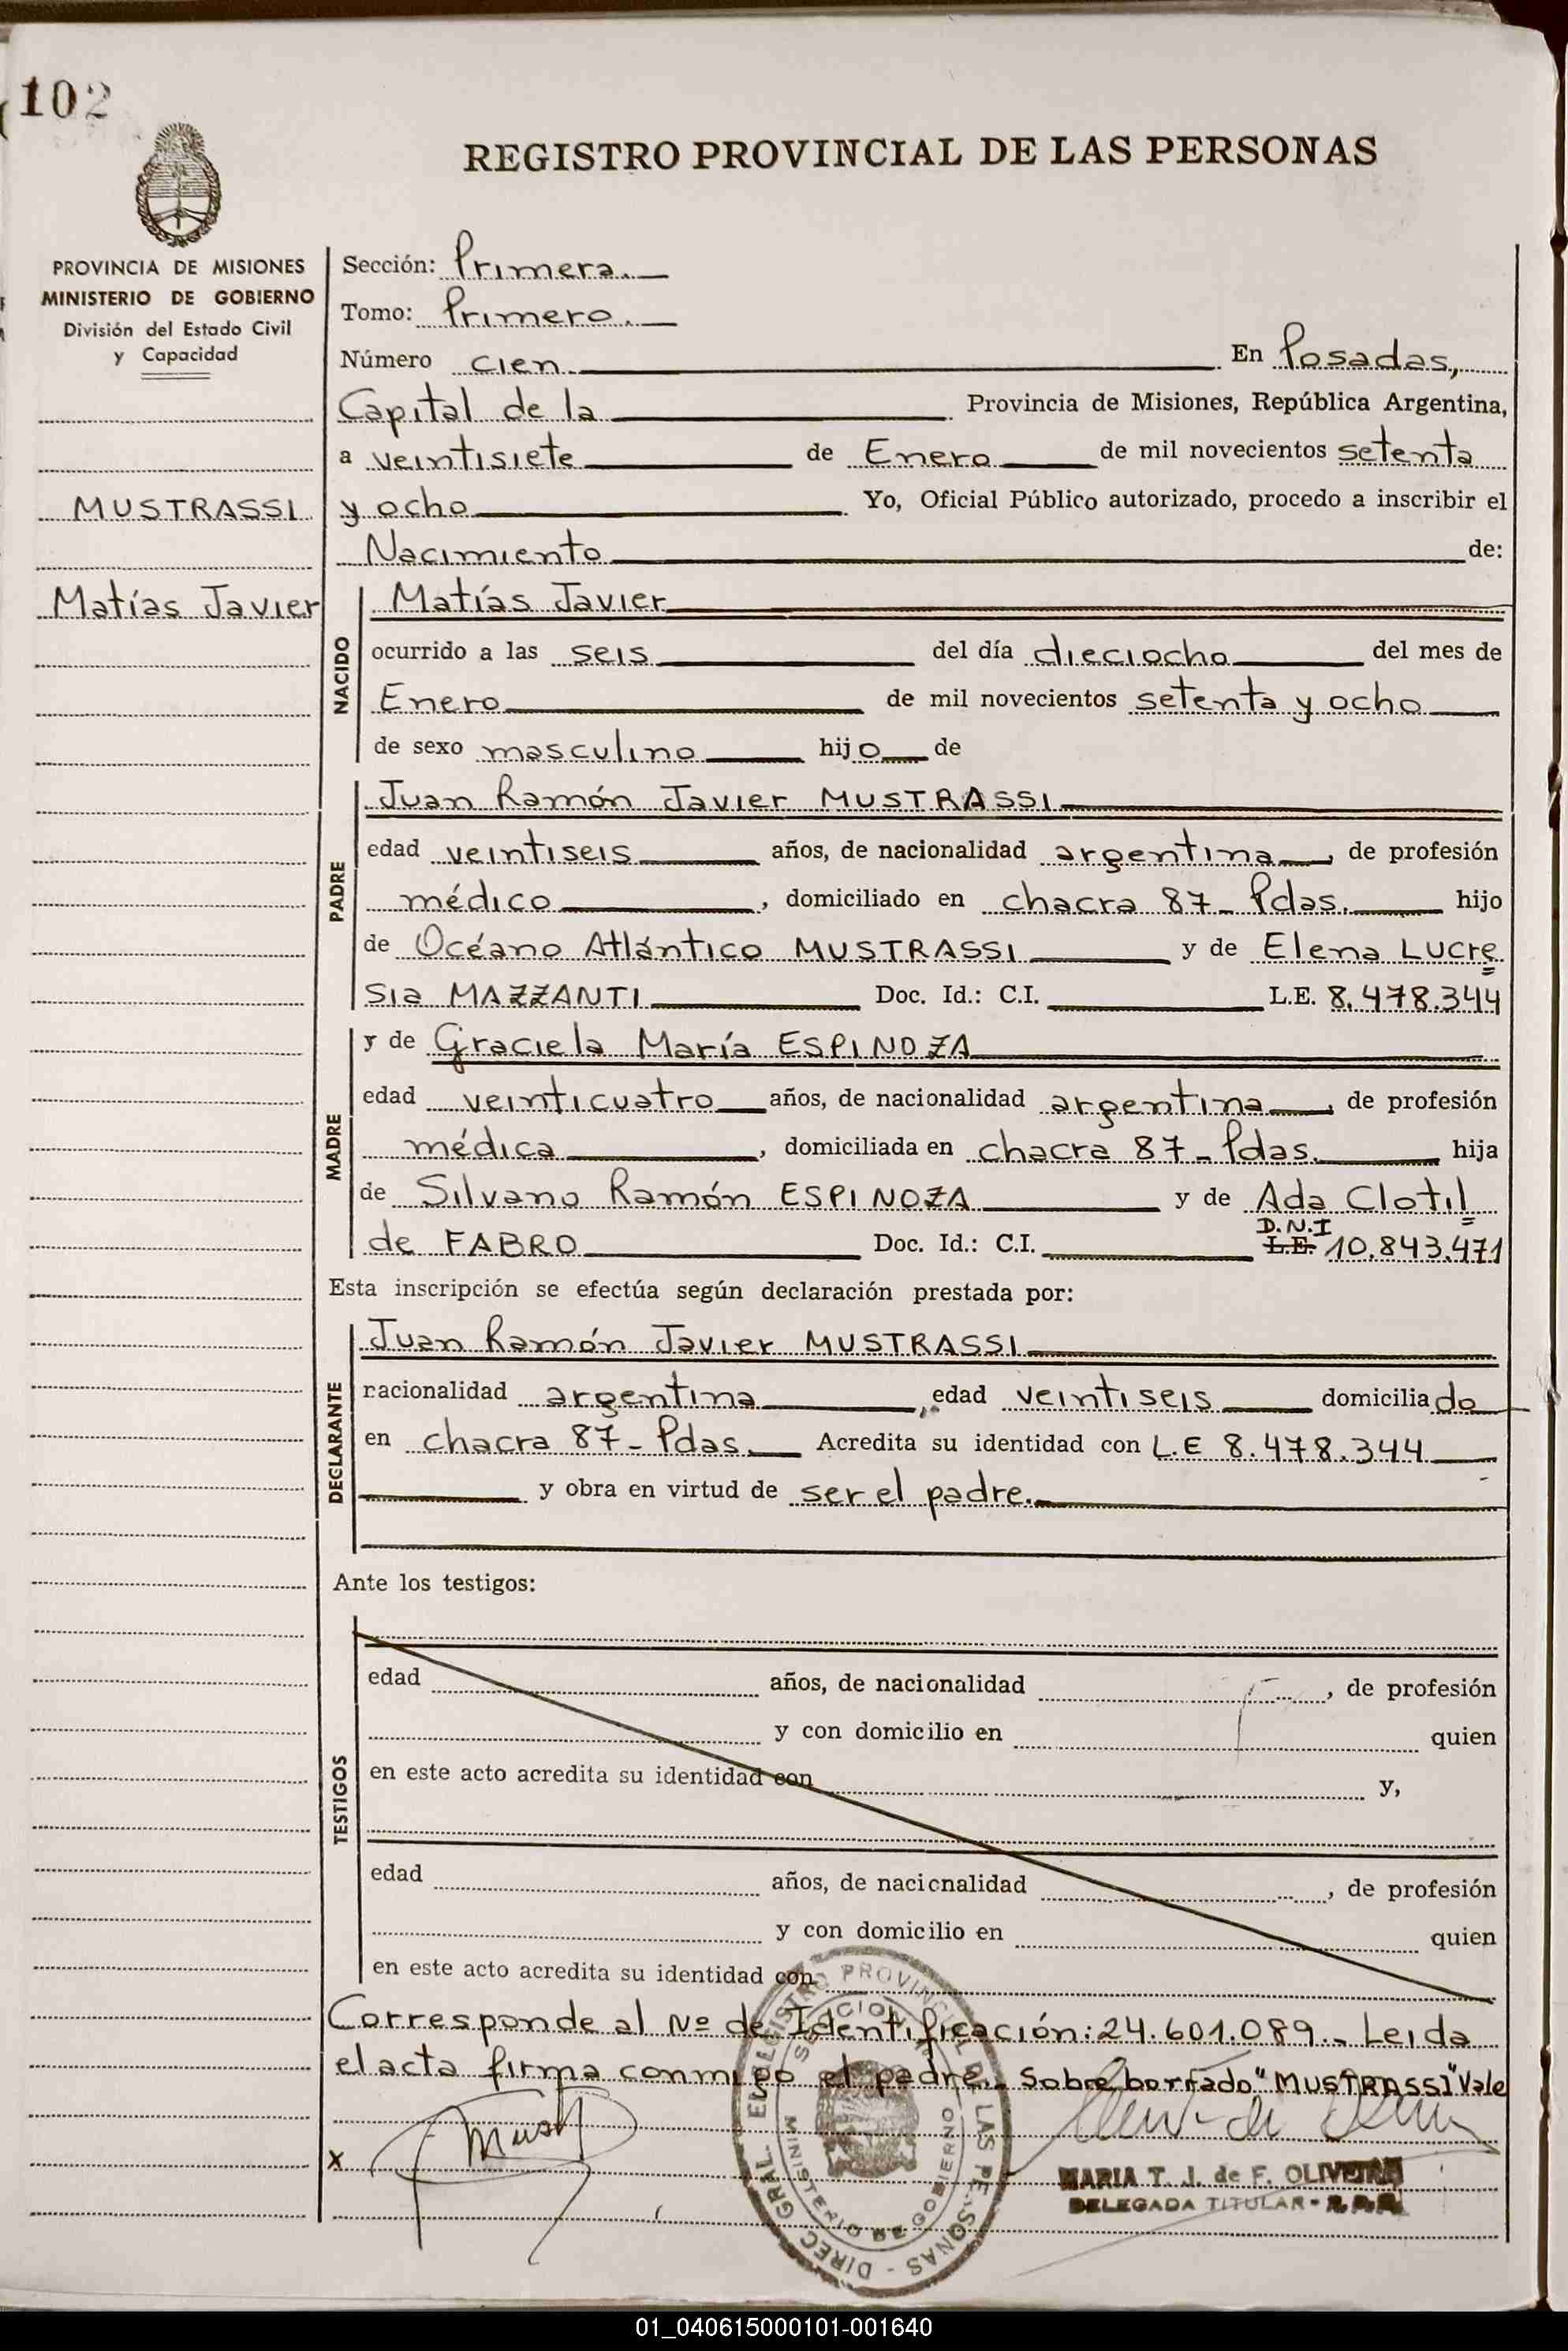 102
REGISTRO PROVINCIAL DE LAS PERSONAS
PROVINCIA DE MISIONES
MINISTERIO DE GOBIERNO
División del Estado Civil
y Capacidad
MUSTRASSI
Matías Javier
Sección: Primera.
Tomo: Primero.
Número cien En Posadas,
Capital de la Provincia de Misiones, República Argentina,
a veintisiete de Enero de mil novecientos setenta
y ocho Yo, Oficial Público autorizado, procedo a inscribir el
Nacimiento de:
NACIDO
Matías Javier
ocurrido a las seis del día dieciocho del mes de
Enero de mil novecientos setenta y ocho
de sexo masculino hijo de
PADRE
Juan Ramón Javier MUSTRASSI
edad veintiseis años, de nacionalidad argentina, de profesión
médico, domiciliado en chacra 87- Pdas. hijo
de Océano Atlántico MUSTRASSI y de Elena Lucre
sia MAZZANTI Doc. Id.: C.I. L.E. 8.478.344
MADRE
y de Graciela María ESPINOZA
edad veinticuatro años, de nacionalidad argentina, de profesión
médica, domiciliada en chacra 87- Pdas. hija
de Silvano Ramón ESPINOZA y de Ada Clotil
D.N.I
de FABRO Doc. Id.: C.I. L.E. 10.843.471
Esta inscripción se efectúa según declaración prestada por:
DECLARANTE
Juan Ramón Javier MUSTRASSI
nacionalidad argentina, edad veintiseis domiciliado
en chacra 87- Pdas. Acredita su identidad con L.E 8.478.344
y obra en virtud de ser el padre.
Ante los testigos:
TESTIGOS
edad años, de nacionalidad , de profesión
y con domicilio en quien
en este acto acredita su identidad con y,
edad años, de nacionalidad , de profesión
y con domicilio en quien
en este acto acredita su identidad con
Corresponde al Nº de Identificación: 24.601.089.- Leida
el acta firma conmigo el padre.- Sobre borrado "MUSTRASSI" Vale
x
MARIA T. J. de F. OLIVEIRA
DELEGADA TITULAR -
01_040615000101-001640